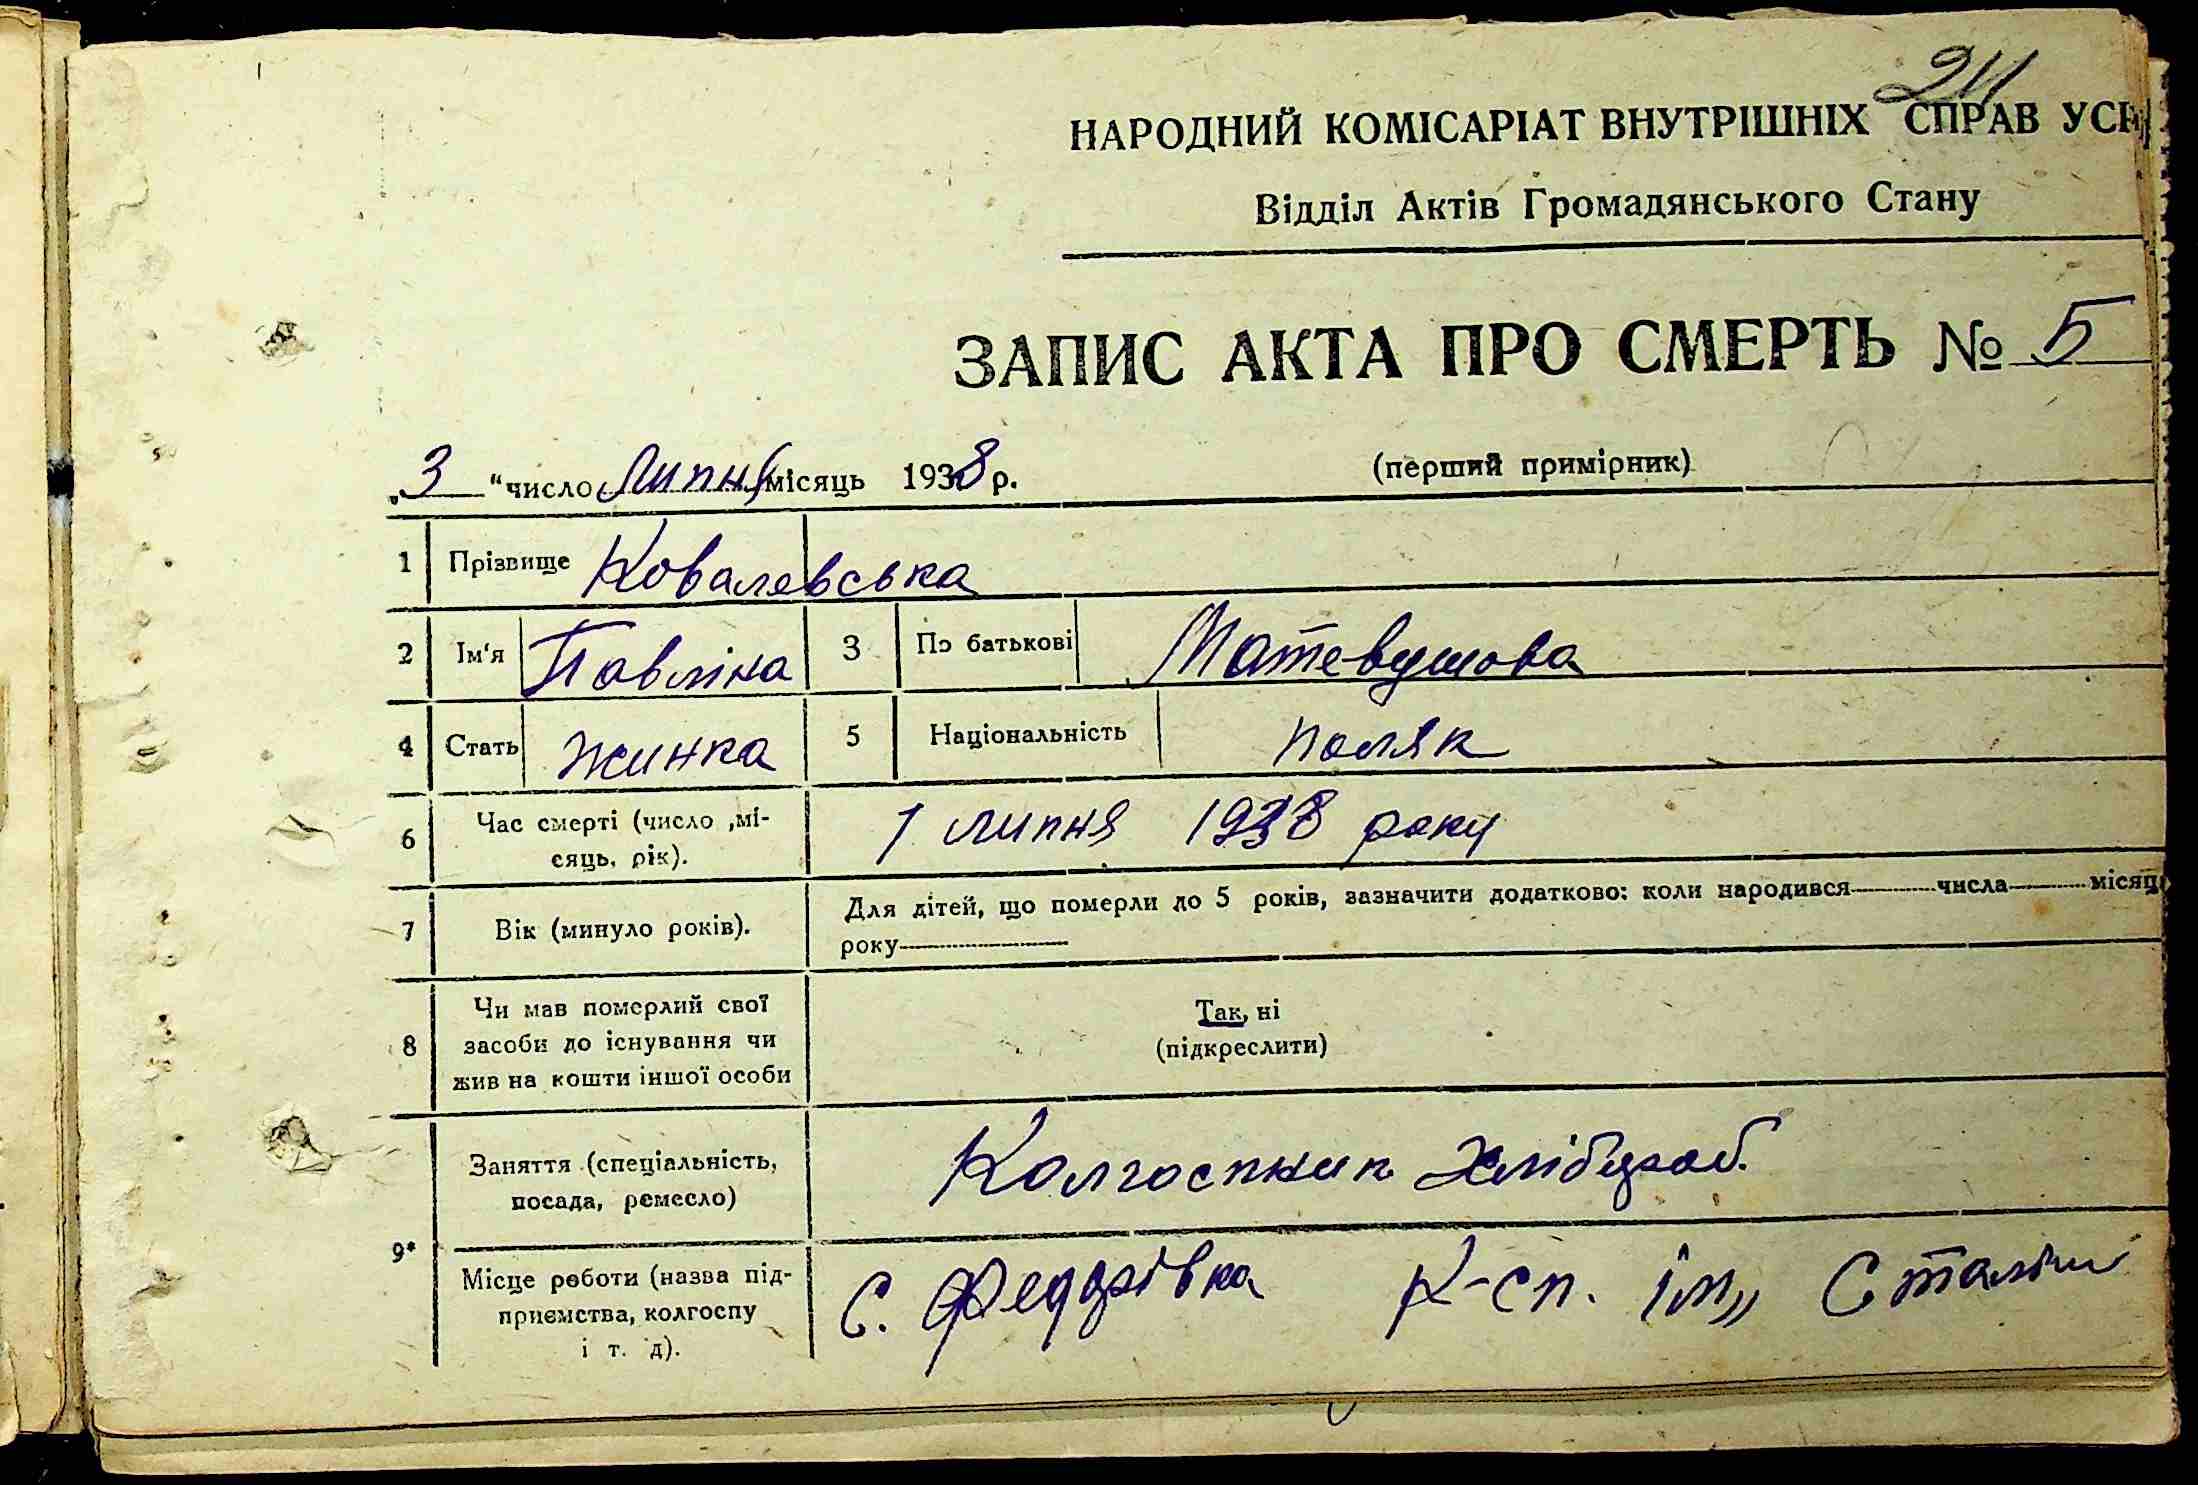 НАРОДНИЙ КОМІСАРІАТ ВНУТРІШНІХ СПРАВ
Відділ Актів Громадянського Стану
ЗАПИС АКТА ПРО СМЕРТЬ № 5
„3 “ число Липня місяць 1938 р.
(перший примірник)
1 Прізвище Ковалевська
2 Ім'я Павліна 3 По батькові Матевушова
4 Стать жинка 5 Національність поляк
6 Час смерті (число ,мі-
сяць, рік).
1 липня 1938 року
7 Вік (минуло років).
Для дітей, що померли до 5 років, зазначити додатково: коли народився числа місяц
року
8 Чи мав померлий свої
засоби до існування чи
жив на кошти іншої особи
Так, ні
(підкреслити)
9* Заняття (спеціальність,
посада, ремесло)
Колгоспник Хлібороб.
Місце роботи (назва під-
приємства, колгоспу
і т. д).
С. К-сп. ім„ Сталіна